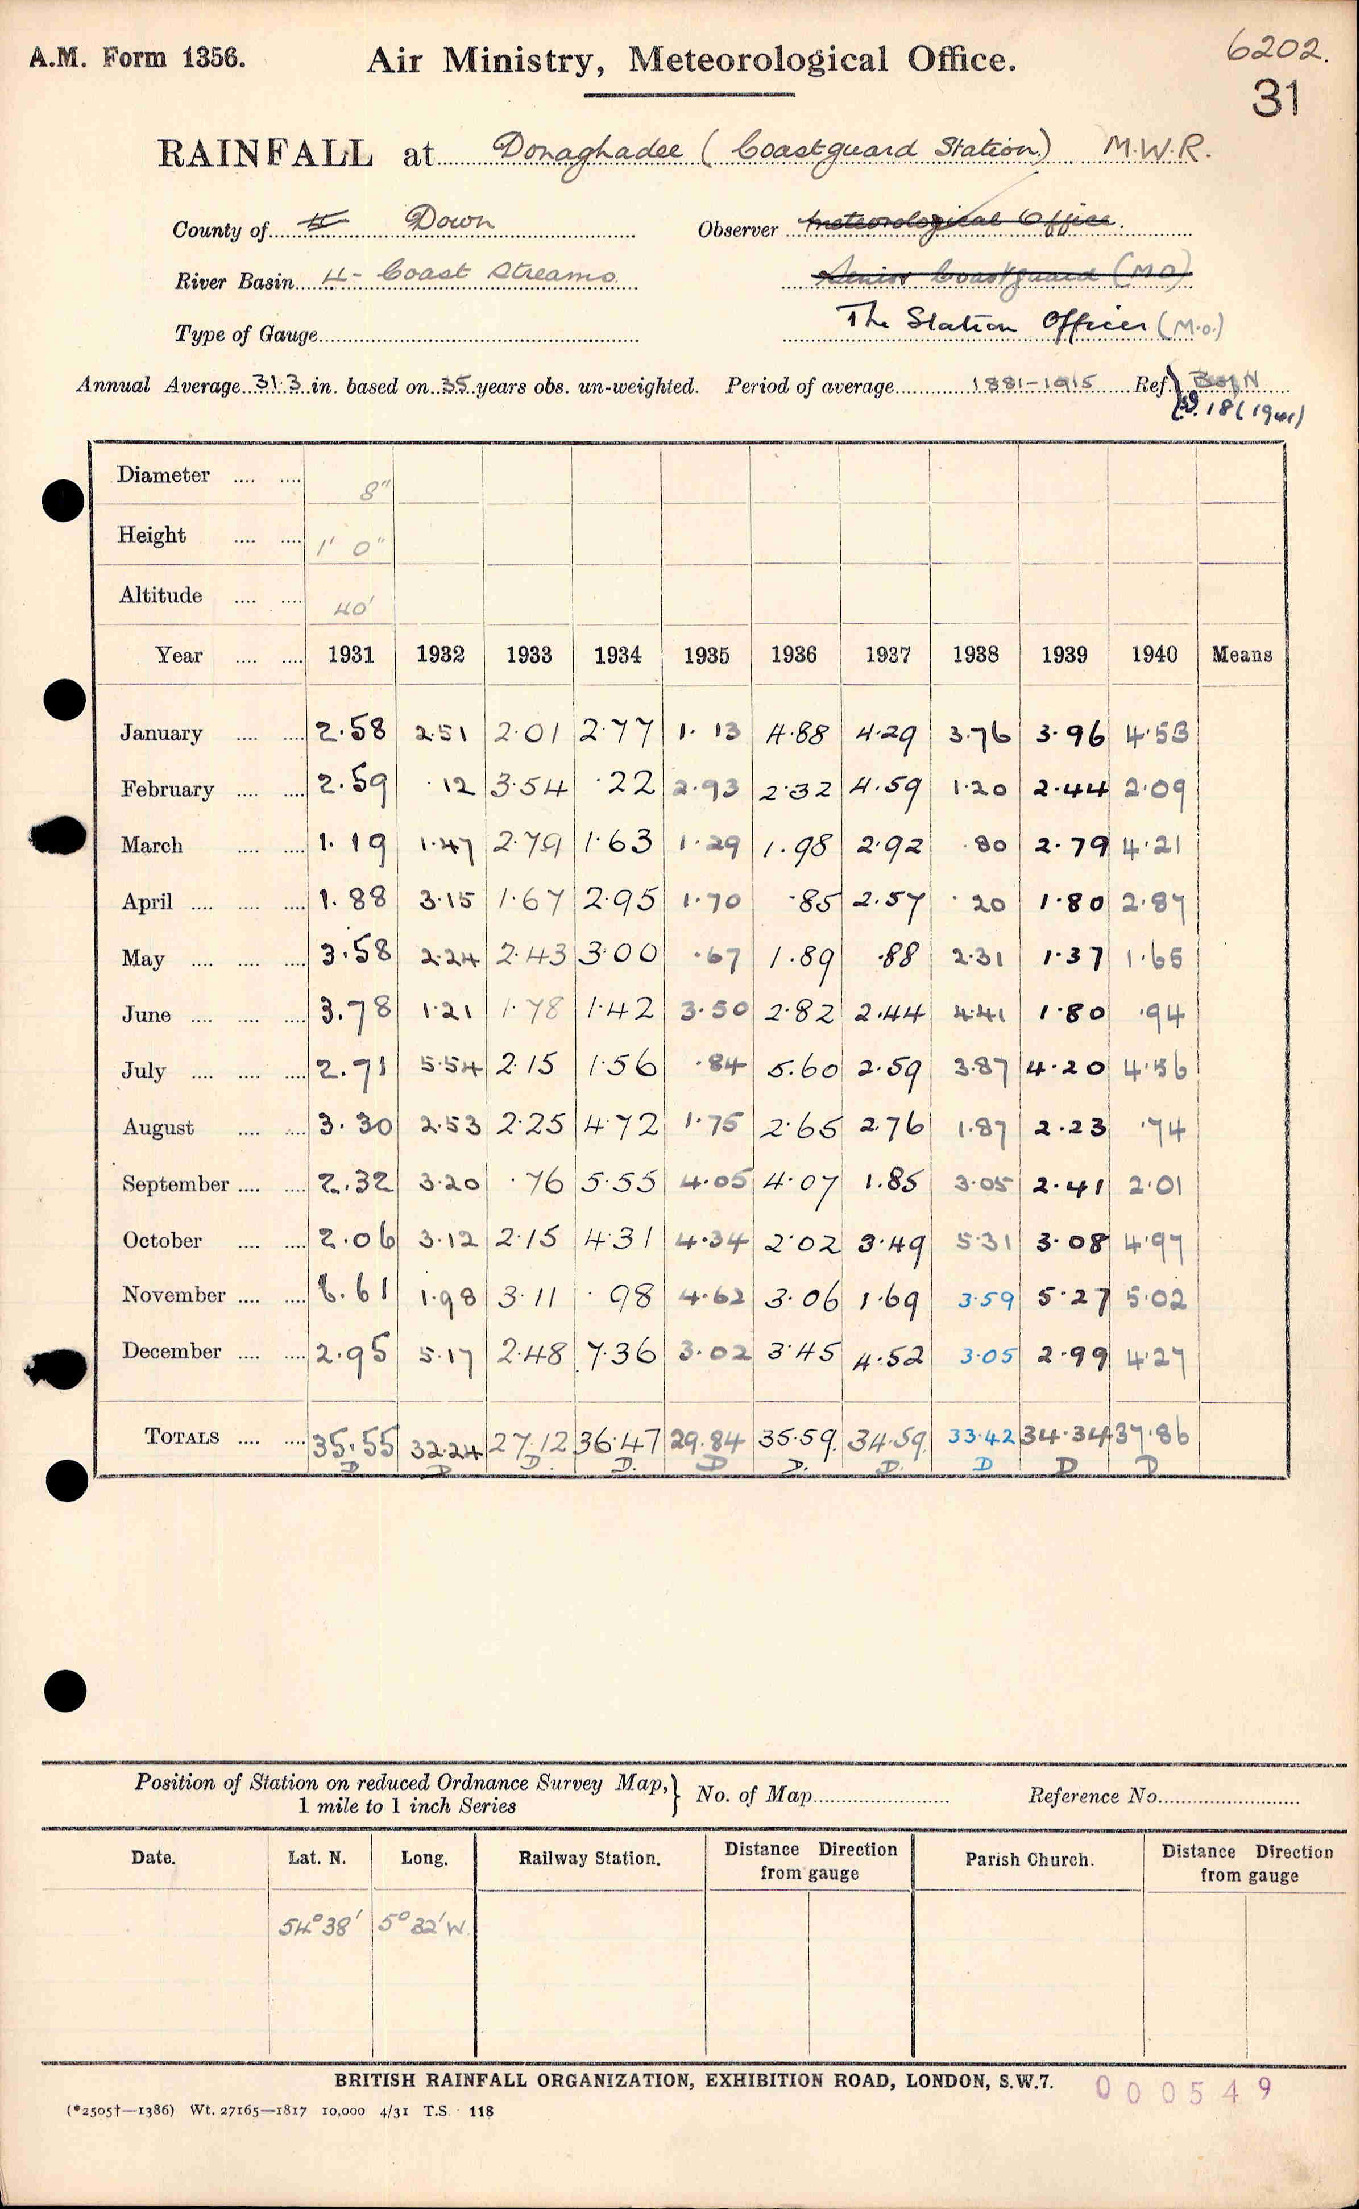 A.M. Form 1356.
Air Ministry, Meteorological Office.
6202.
31
RAINFALL at Donaghadee (Coastguard Station) M.W.R.
County of Down
Observer Meteorological Office.
River Basin 4 - Coast Streams
Senior Coastguard (MO)
Type of Gauge
The Station Officer (M.O.)
Annual Average 31.3 in. based on 35 years obs. un-weighted. Period of average 1881-1915 Ref.
18 (1941)
Diameter .... .... 8"
Height .... .... 1' 0"
Altitude .... .... 40'
Year .... .... 1931 1932 1933 1934 1935 1936 1937 1938 1939 1940 Means
January .... .... 2.58 2.51 2.01 2.77 1.13 4.88 4.29 3.76 3.96 4.53
February .... .... 2.59 .12 3.54 .22 2.93 2.32 4.59 1.20 2.44 2.09
March .... .... 1.19 1.47 2.79 1.63 1.29 1.98 2.92 .80 2.79 4.21
April .... .... .... 1.88 3.15 1.67 2.95 1.70 .85 2.57 .20 1.80 2.87
May .... .... .... 3.58 2.24 2.43 3.00 .67 1.89 .88 2.31 1.37 1.65
June .... .... .... 3.78 1.21 1.78 1.42 3.50 2.82 2.44 4.41 1.80 .94
July .... .... .... 2.71 5.54 2.15 1.56 .84 5.60 2.59 3.87 4.20 4.56
August .... .... 3.30 2.53 2.25 4.72 1.75 2.65 2.76 1.87 2.23 .74
September .... .... 2.32 3.20 .76 5.55 4.05 4.07 1.85 3.05 2.41 2.01
October .... .... 2.06 3.12 2.15 4.31 4.34 2.02 3.49 5.31 3.08 4.97
November .... .... 6.61 1.98 3.11 .98 4.62 3.06 1.69 3.59 5.27 5.02
December .... .... 2.95 5.17 2.48 7.36 3.02 3.45 4.52 3.05 2.99 4.27
TOTALS .... .... 35.55 32.24 27.12 36.47 29.84 35.59 34.59 33.42 34.34 37.86
D D D. D. D D. D. D D D
Position of Station on reduced Ordnance Survey Map,} No. of Map Reference No.
1 mile to 1 inch Series
Date. Lat. N. Long. Railway Station. Distance Direction from gauge Parish Church. Distance Direction from gauge
54° 38' 5° 32' W.
BRITISH RAINFALL ORGANIZATION, EXHIBITION ROAD, LONDON, S.W.7.
000549
(*2505†—1386) Wt. 27165—1817 10,000 4/31 T.S. 118